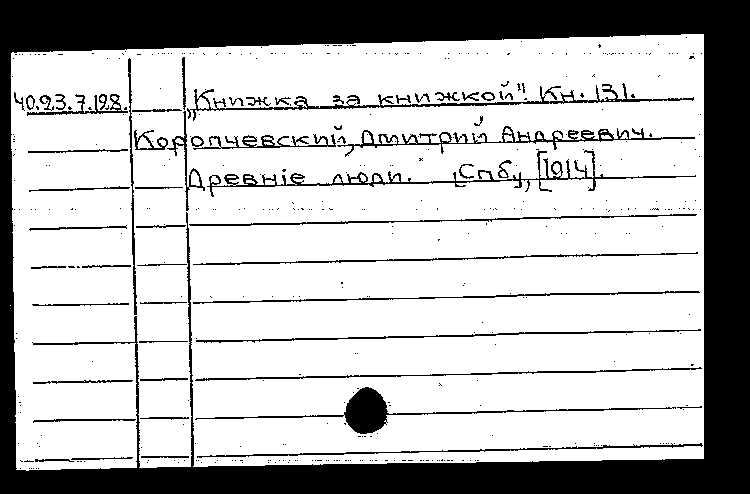 40.23.7.128. „Книжка за книжкой". Кн. 131.
Коропчевский, Дмитрий Андреевич.
Древніе люди. [Спб], [1914].